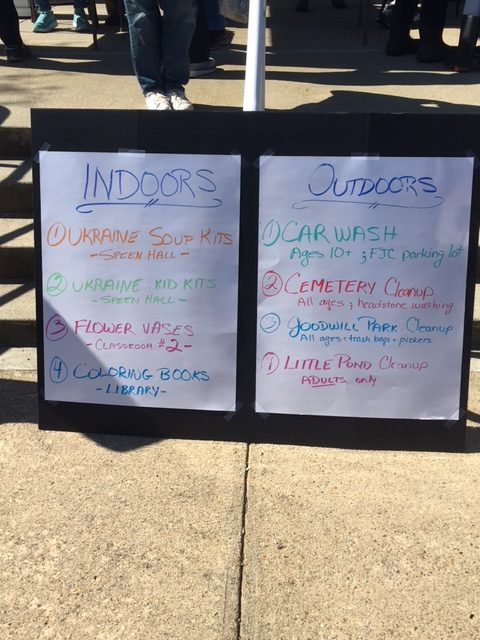 INDOORS
① UKRAINE SOUP KITS
- SPEEN HALL -
② UKRAINE KID KITS
- SPEEN HALL -
③ FLOWER VASES
- CLASSROOM #2 -
④ COLORING BOOKS
- LIBRARY -
OUTDOORS
① CAR WASH
Ages 10+ ; FJC parking lot
② CEMETERY Cleanup
All ages ; headstone washing
③ GOODWILL PARK Cleanup
All ages : trash bags + pickers
① LITTLE POND Cleanup
ADULTS only